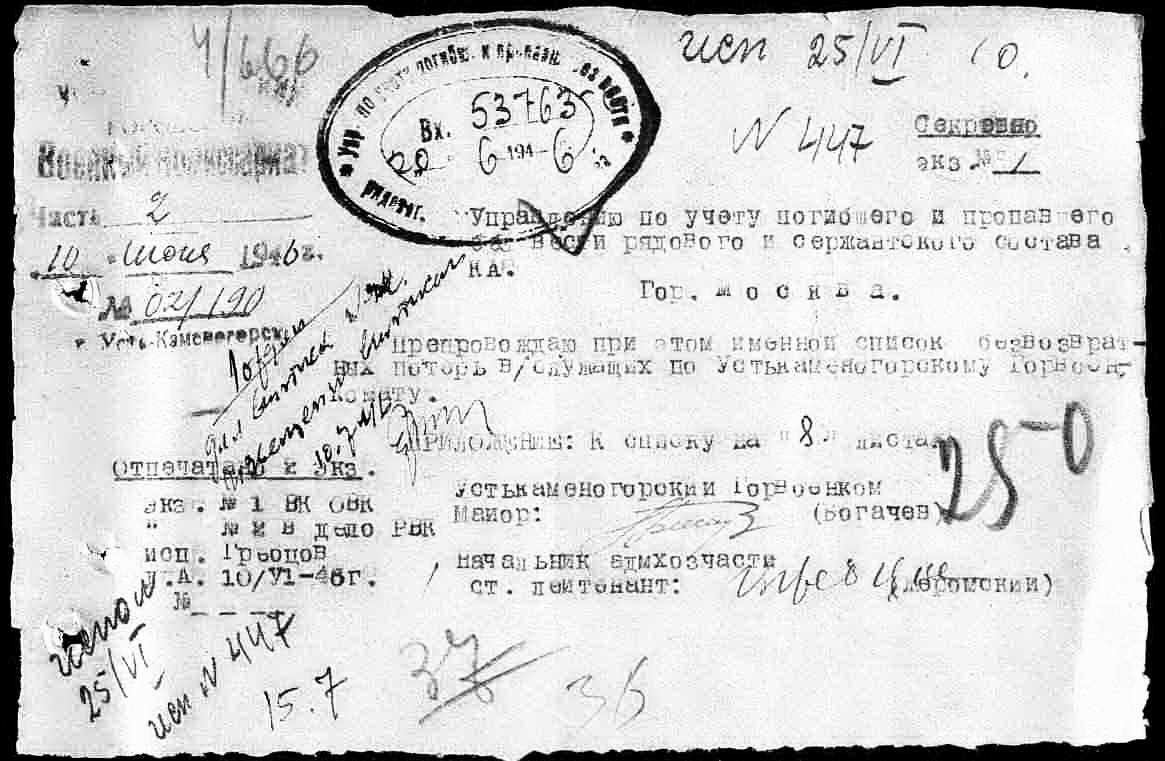 4/666
исп 25/VI
N 447
Секретно
экз. № 1
Военный комиссариат
Часть 2
"10" июня 1946 г.
№ 02/190
г. Усть-Каменогорск
Упр. по учету погибш. и пропавш. без вести
рядовог.
Вх. 53763
20 6 1946
Управлению по учету погибшего и пропавшего
без вести рядового и сержантского состава
КА.
Гор. Москва.
Препровождаю при этом именной список безвозврат-
ных потерь в/служащих по Устькаменогорскому Горвоен-
комату.
ПРИЛОЖЕНИЕ: К списку на "8" листах
Отпечатано 2 экз.
экз. № 1 ВК ОВК
" № 2 В дело РВК
исп.
10/VI-46г.
№
Устькаменогорский Горвоенком
Майор: (Богачев)
Начальник адмхозчасти
ст. лейтенант:
25-0
25/VI
исп N 447
15.7
37
36